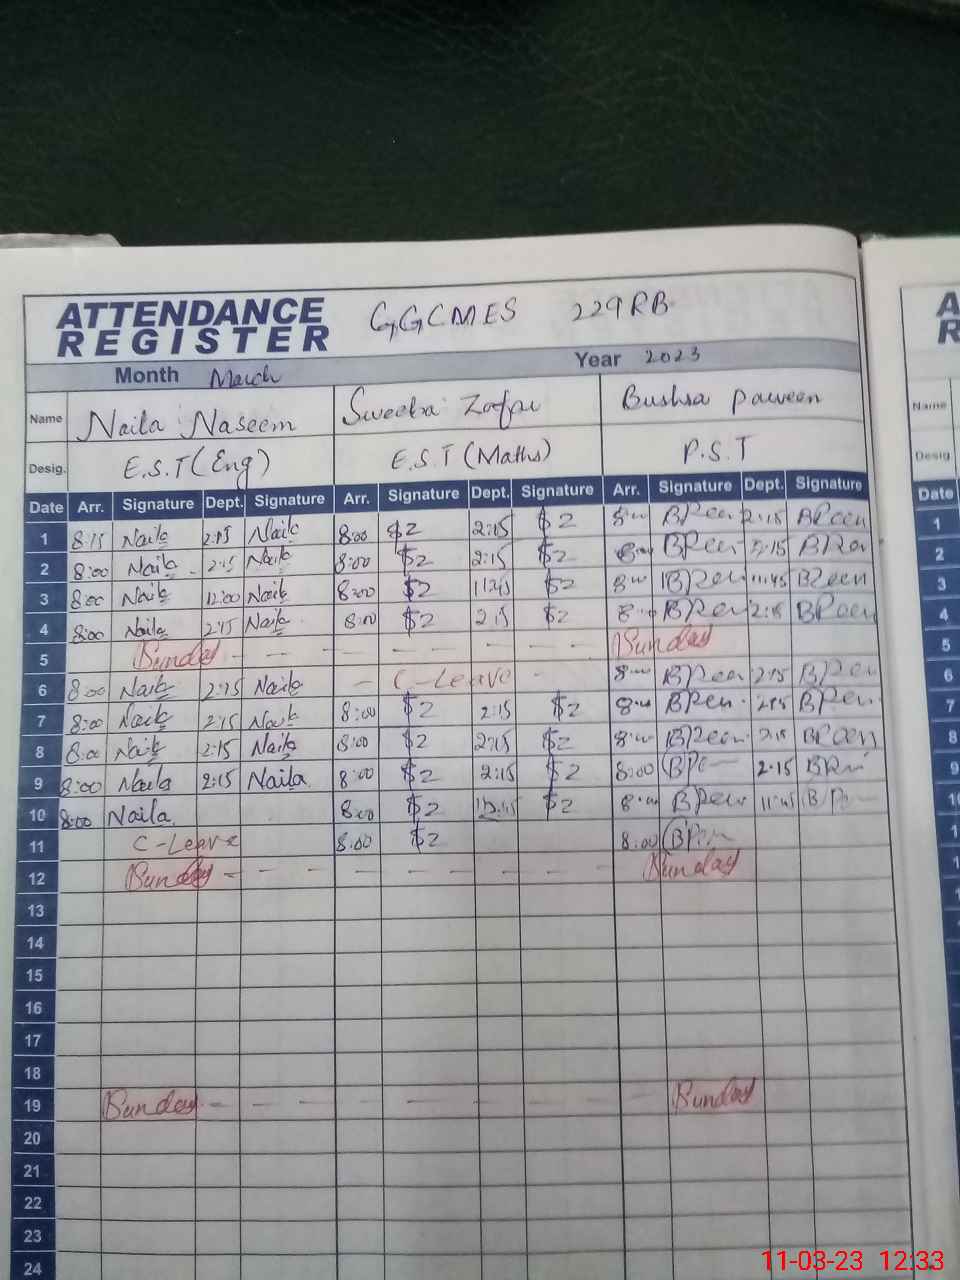 ATTENDANCE REGISTER GGCMES 229RB
Month March Year 2023
Name Naila Naseem Sweeba Zafar Bushra Parveen
Desig. E.S.T (Eng) E.S.T (Maths) P.S.T
Date Arr. Signature Dept. Signature Arr. Signature Dept. Signature Arr. Signature Dept. Signature
1 8:15 Naila 2:15 Naila 8:00 $2 2:15 $2 8:00 BPeen 2:15 BPeen
2 8:00 Naila 2:15 Naila 8:00 $2 2:15 $2 8:00 BPeen 2:15
3 8:00 Naila 12:00 Naila 8:00 $2 11:45 $2 8:00 BPeen 11:45 BPeen
4 8:00 Naila 2:15 Naila 8:00 $2 2:15 $2 8:00 BPeen 2:15 BPeen
5 Sunday Sunday
6 8:00 Naila 2:15 Naila C-Leave 8:00 BPeen 2:15 BPeen
7 8:00 Naila 2:15 Naila 8:00 $2 2:15 $2 8:00 BPeen 2:15 BPeen
8 8:00 Naila 2:15 Naila 8:00 $2 2:15 $2 8:00 BPeen 2:15 BPeen
9 8:00 Naila 2:15 Naila 8:00 $2 2:15 $2 8:00 2:15
10 8:00 Naila 8:00 $2 $2 8:00 BPeen 11:45
11 C-Leave 8:00 $2 8:00
12 Sunday Sunday
13
14
15
16
17
18
19 Sunday Sunday
20
21
22
23
24
Name
Desig
Date
1
2
3
4
5
6
7
8
9
10
11-03-23 12:33